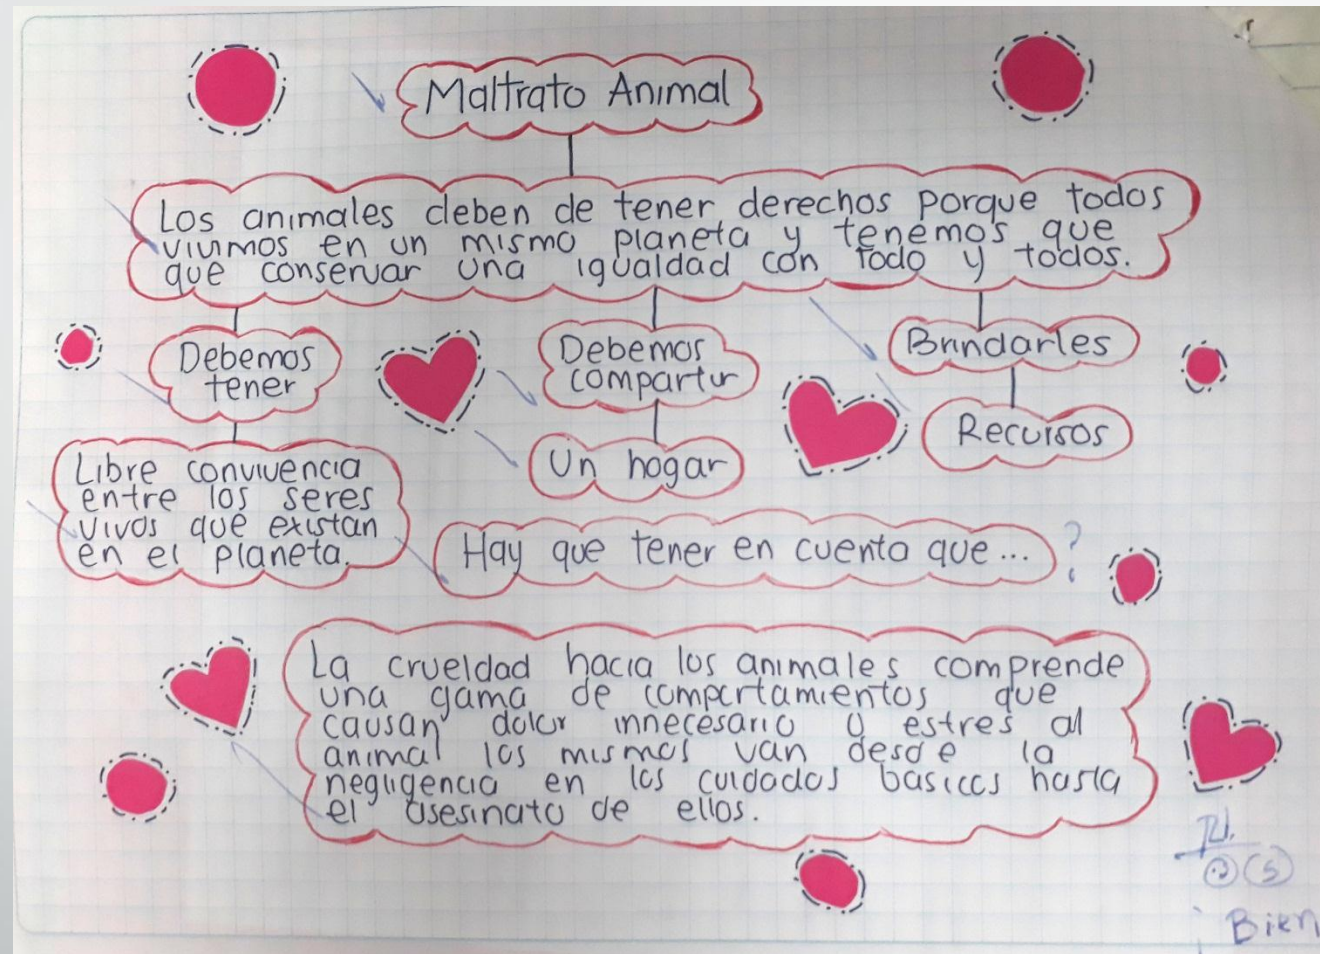 Maltrato Animal
Los animales deben de tener derechos porque todos
vivimos en un mismo planeta y tenemos que
que conservar una igualdad con todo y todos.
Debemos
tener
Debemos
compartir
Brindarles
Libre convivencia
entre los seres
vivos que existan
en el planeta.
Un hogar
Recursos
Hay que tener en cuenta que... ?
La crueldad hacia los animales comprende
una gama de comportamientos que
causan dolor innecesario o estres al
animal los mismos van desde la
negligencia en los cuidados basicos hasta
el asesinato de ellos.
(5)
Bien